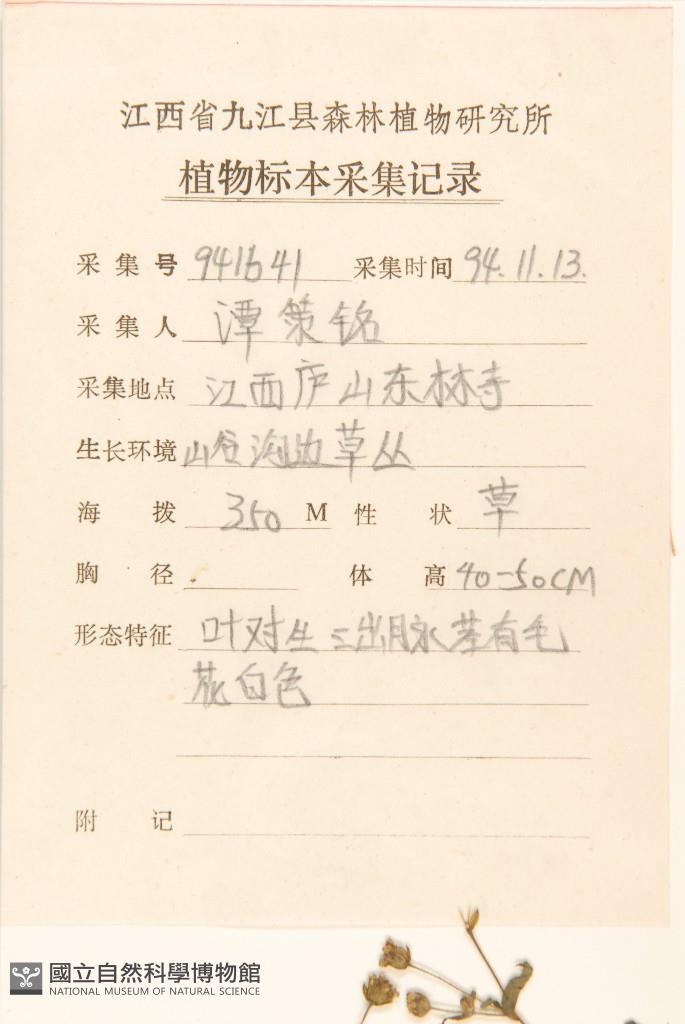 江西省九江县森林植物研究所
植物标本采集记录
采集号 941641 采集时间 94.11.13.
采集人 谭策铭
采集地点 江西庐山东林寺
生长环境 山谷沟边草丛
海拨 350 M 性状 草
胸径 体高 40-50CM
形态特征 叶对生 三出脉 茎有毛
花白色
附记
國立自然科學博物館
NATIONAL MUSEUM OF NATURAL SCIENCE